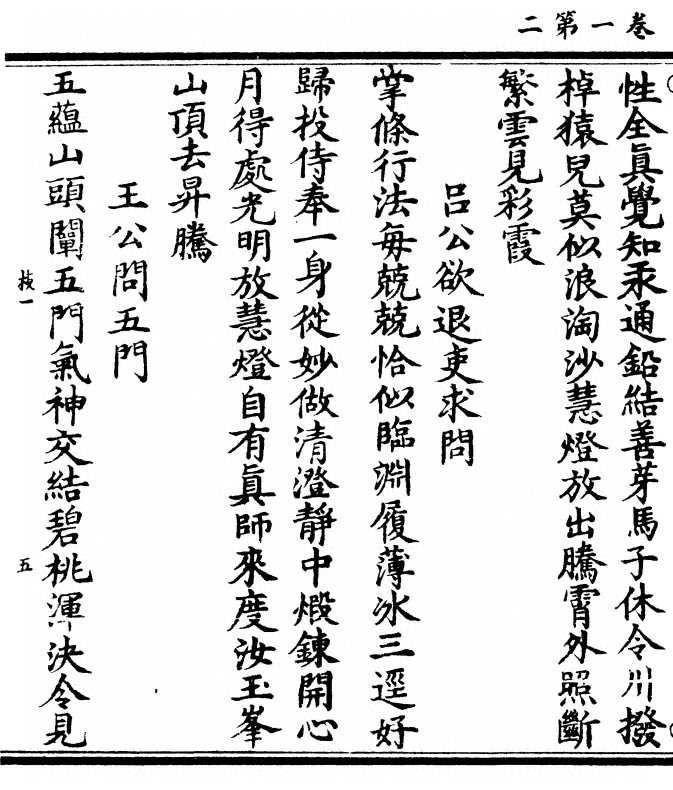 卷一第二
性全眞覺知汞通鉛結善芽馬子休令川撥
棹猿兒莫似浪淘沙慧燈放出騰霄外照斷
繁雲見彩霞
呂公欲退吏求問
掌條行法每兢兢恰似臨淵履薄冰三逕好
歸投侍奉一身從妙做清澄靜中煅鍊開心
月得處光明放慧燈自有眞師來度汝玉峯
山頂去昇騰
王公問五門
五蘊山頭闡五門氣神交結碧桃渾決令見
枝一
五